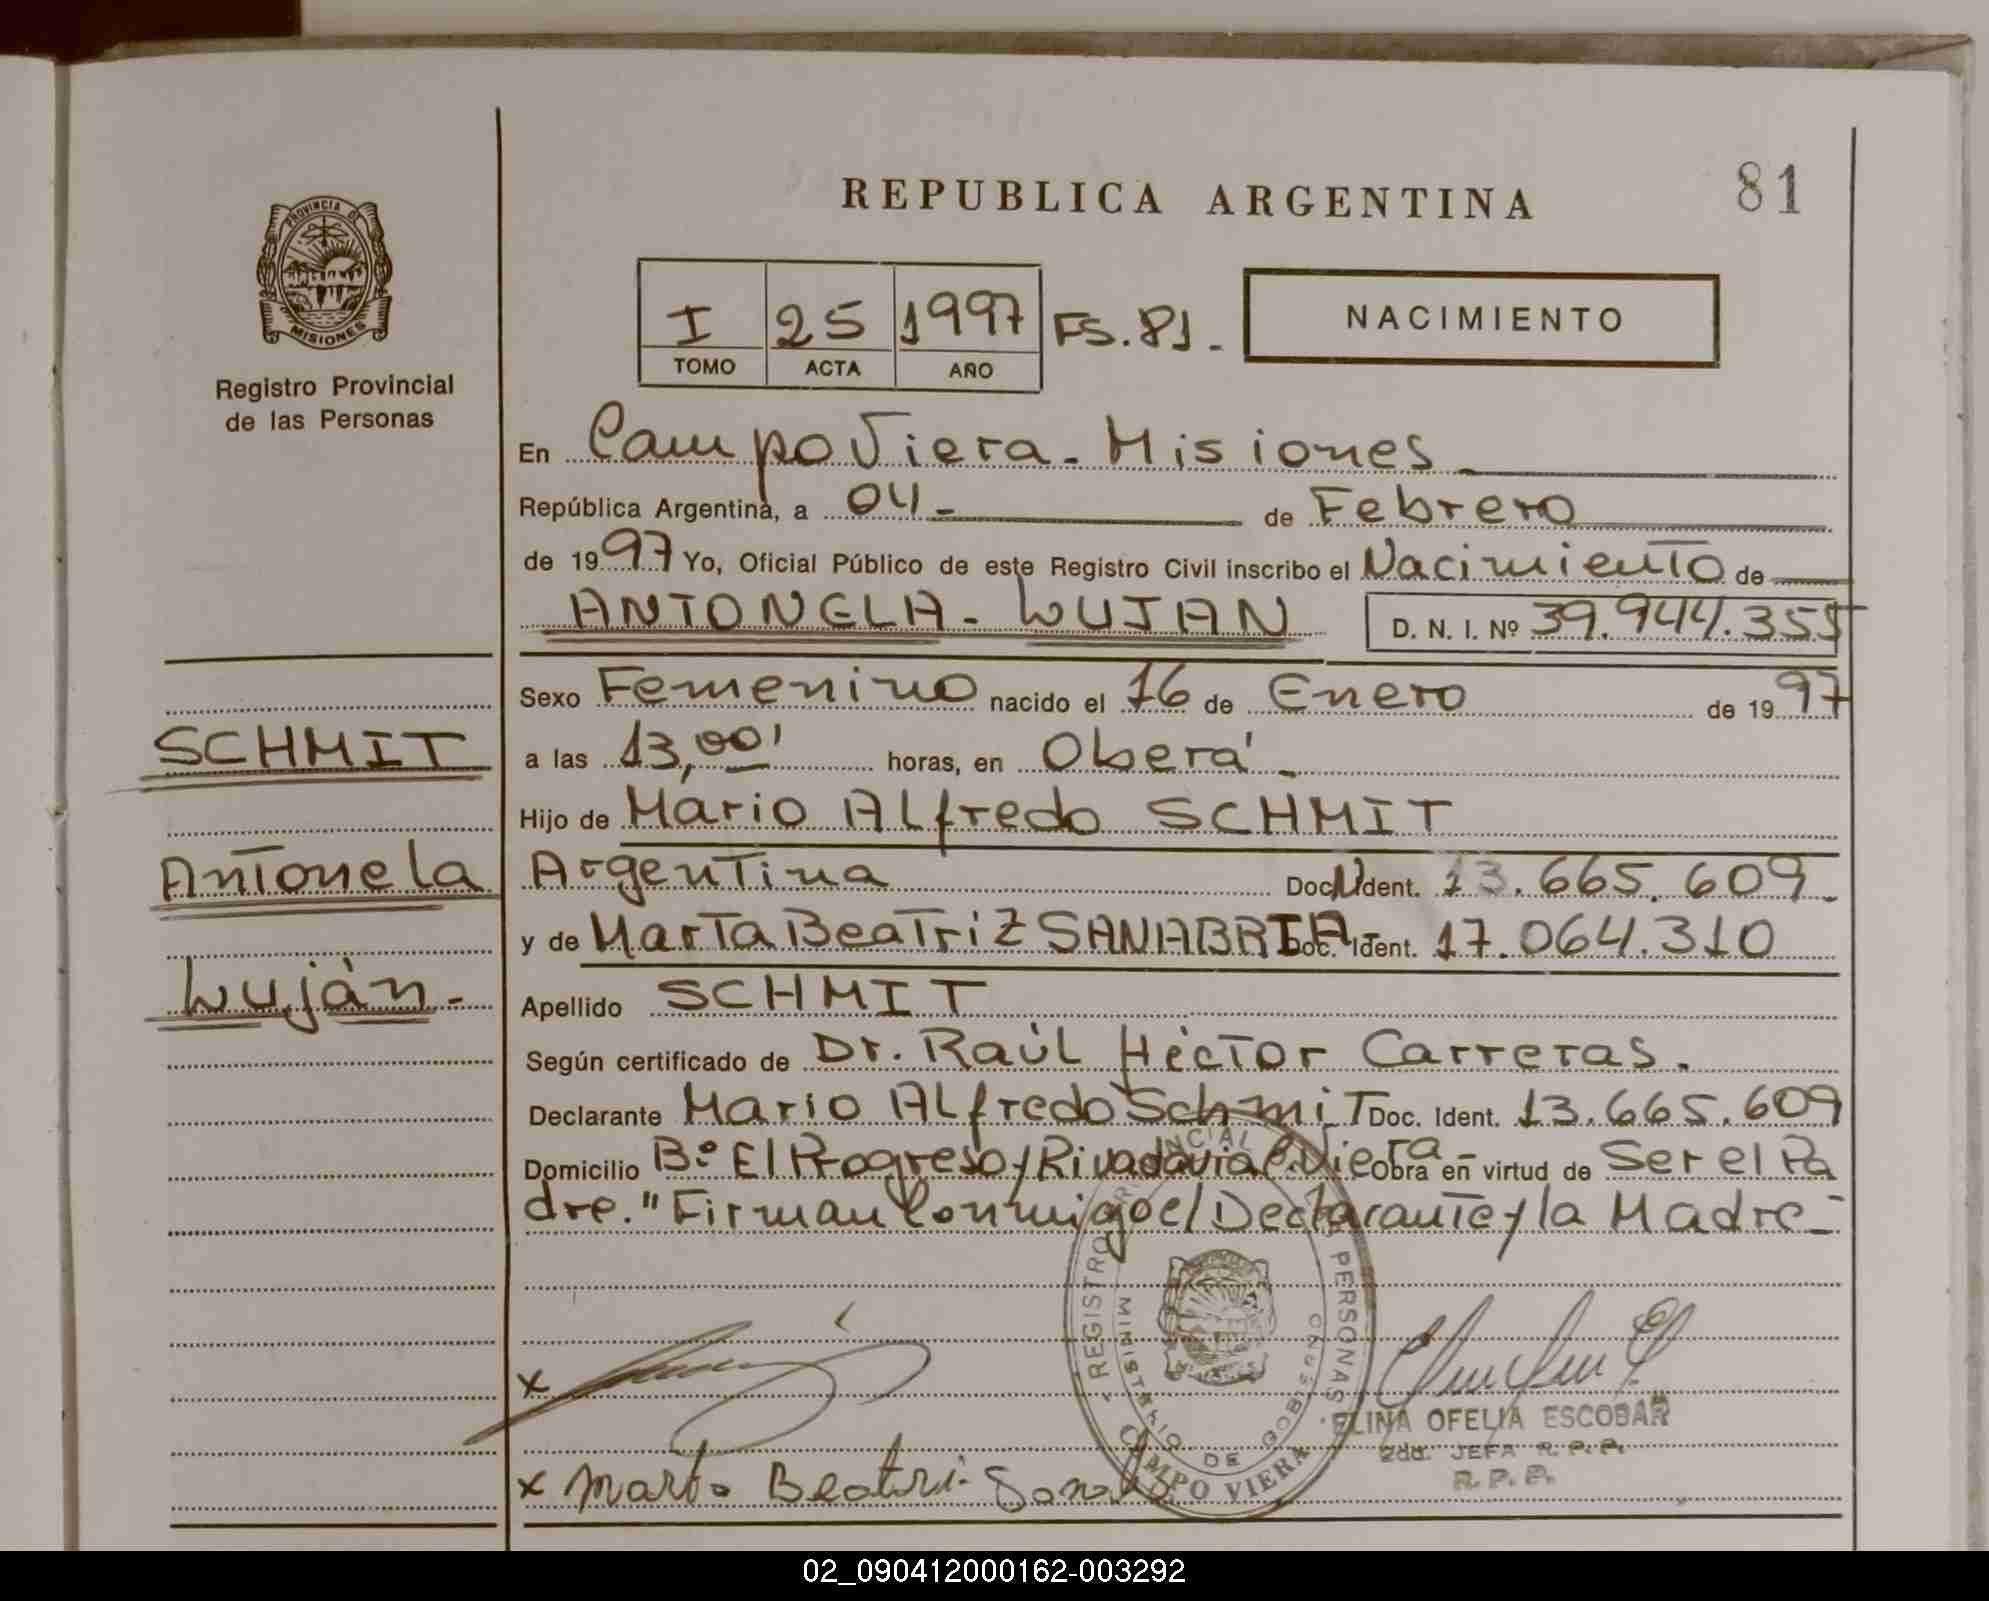 81
REPUBLICA ARGENTINA
PROVINCIA DE
MISIONES
Registro Provincial
de las Personas
I 25 1997 FS. 81.
TOMO ACTA AÑO
NACIMIENTO
En Campo Viera - Misiones
República Argentina, a 04 - de Febrero
de 1997 Yo, Oficial Público de este Registro Civil inscribo el Nacimiento de
ANTONELA - LUJAN D. N. I. Nº 39.944.355
Sexo Femenino nacido el 16 de Enero de 1997
SCHMIT
a las 13,00' horas, en Oberá -
Hijo de Mario Alfredo SCHMIT
Antonela
Argentina Doc. Ident. 13.665.609 -
y de Marta Beatriz SANABRIA Doc. Ident. 17.064.310
Luján -
Apellido SCHMIT
Según certificado de Dr. Raúl Héctor Carreras.
Declarante Mario Alfredo Schmit Doc. Ident. 13.665.609
Domicilio Bº El Progreso y Rivadavia C. Viera Obra en virtud de Ser el Pa
dre." Firman Conmigo el Declarante y la Madre -
REGISTRO PROVINCIAL PERSONAS
MINISTERIO DE GOBIERNO
CAMPO VIERA
x
ELINA OFELIA ESCOBAR
2da. JEFA R.P.P.
R.P.P.
x Marta Beatri
02_090412000162-003292